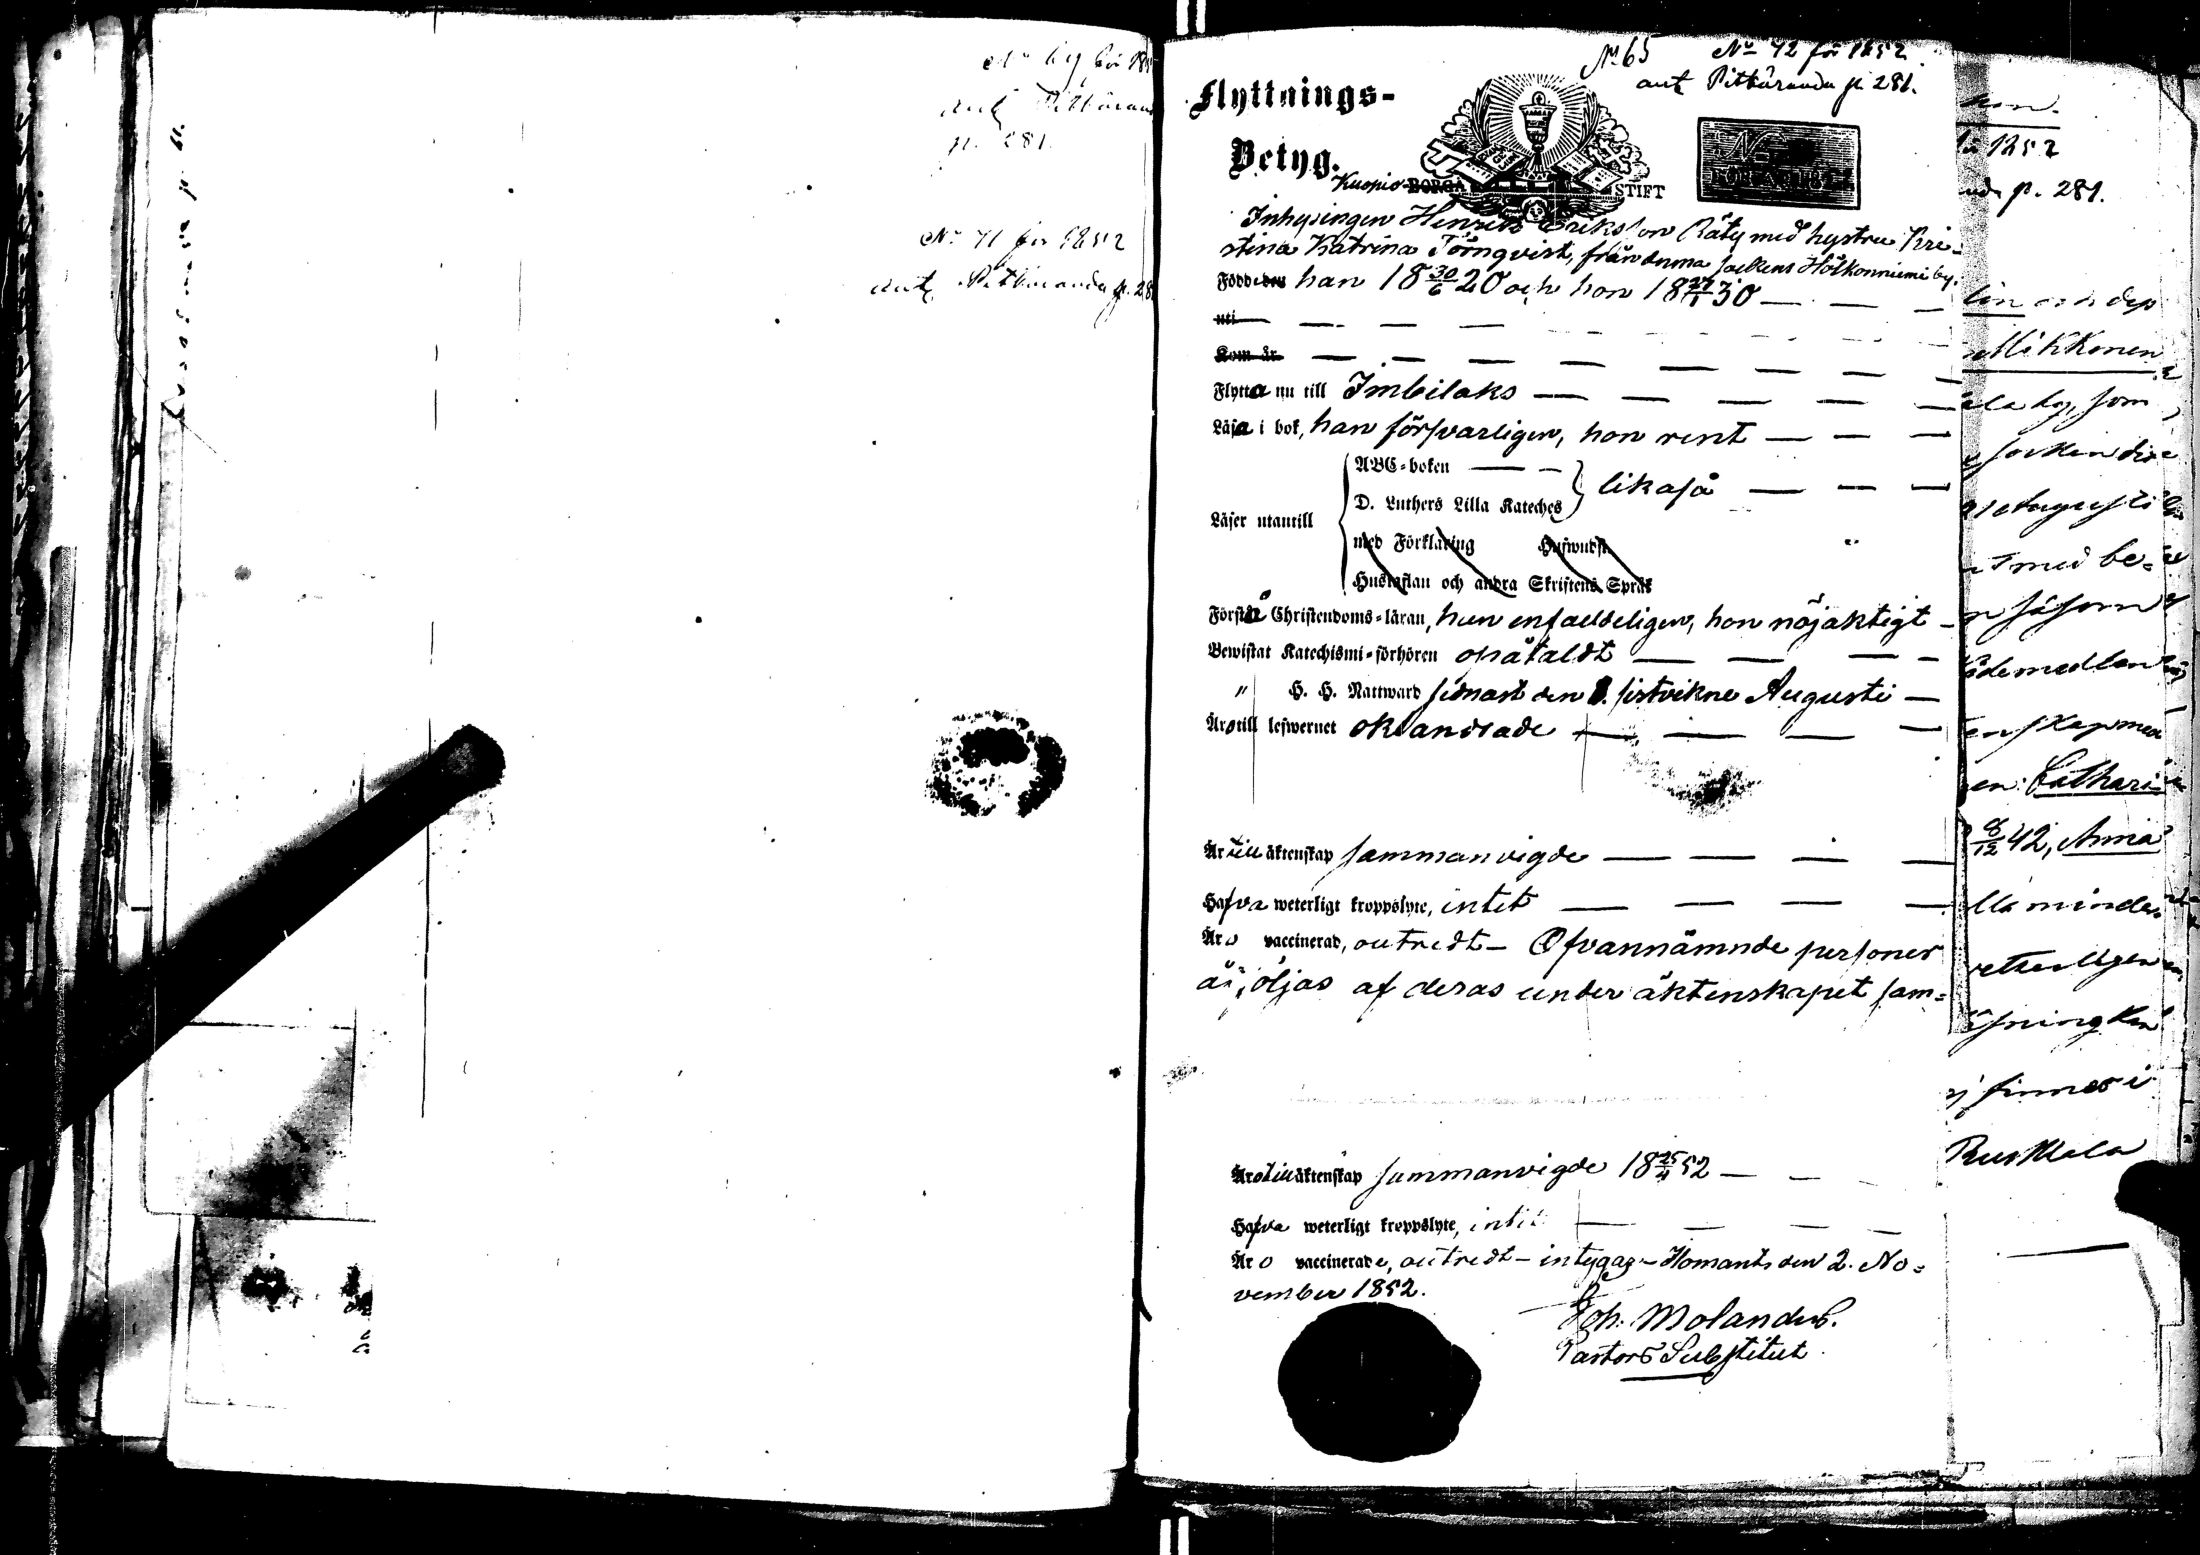 för 185
ant Pitkärand
p. 281.
No 71 för 1852
ant. Pitkäranda p. 28
No 65
No 72 för 1852.
ant Pitkäranda p. 281.
Flyttnings-
Betyg.
Kuopio BORGÅ STIFT
No
FÖR ÅR 18
Inhysingen Henrik Eriksson Räty med hustru Kri-
stina Katrina Törnqvist, från denna sockens Hölkonniemi by.
Född den han 18 30/6 20 och hon 18 27/11 30 — — —
uti — — — —
Kom år — — — — — — —
Flytta nu till Imbilaks — — — — —
Läsa i bok, han försvarligen, hon rent — — —
Läser utantill
ABC-boken — —
D. Luthers Lilla Kateches
likaså — — —
med Förklaring Hufwudst.
Hustaflan och andra Skriftens Språk
Förstå Christendoms-läran, han enfaldeligen, hon nöjaktigt —
Bewistat Katechismi-förhören opåtaldt — — — —
" H. H. Nattward sednast den 1. sistvikne Augusti —
Äro till lefwernet oklandrade — — — —
Är till äktenskap sammanvigde — — — —
Hafva weterligt kroppslyte, intet — — — —
Äro vaccinerad, outredt — Ofvannämnde personer
åtföljas af deras under äktenskapet sam-
Äro till äktenskap sammanvigde 18 25/4 52 — — —
Hafva weterligt kroppslyte, intet — — — —
Äro vaccinerade, outredt — intygas — Ilomants den 2. No-
vember 1852.
Joh. Molander.
Pastors Substitut.
1852
p. 281.
och dess
Mikkonen
by, som
socken
Augusti
med be-
såsom
Cathari-
8/12 42, Anna
minder
finnes i